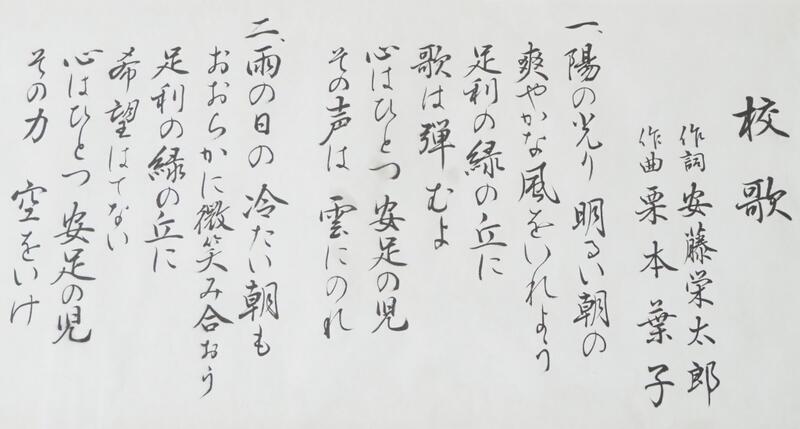 校歌
作詞 安藤栄太郎
作曲 栗本葉子
一、陽の光り 明るい朝の
爽やかな風をいれよう
足利の緑の丘に
歌は弾むよ
心はひとつ 安足の児
その声は 雲にのれ
二、雨の日の 冷たい朝も
おおらかに微笑み合おう
足利の緑の丘に
希望はてない
心はひとつ 安足の児
その力 空をいけ